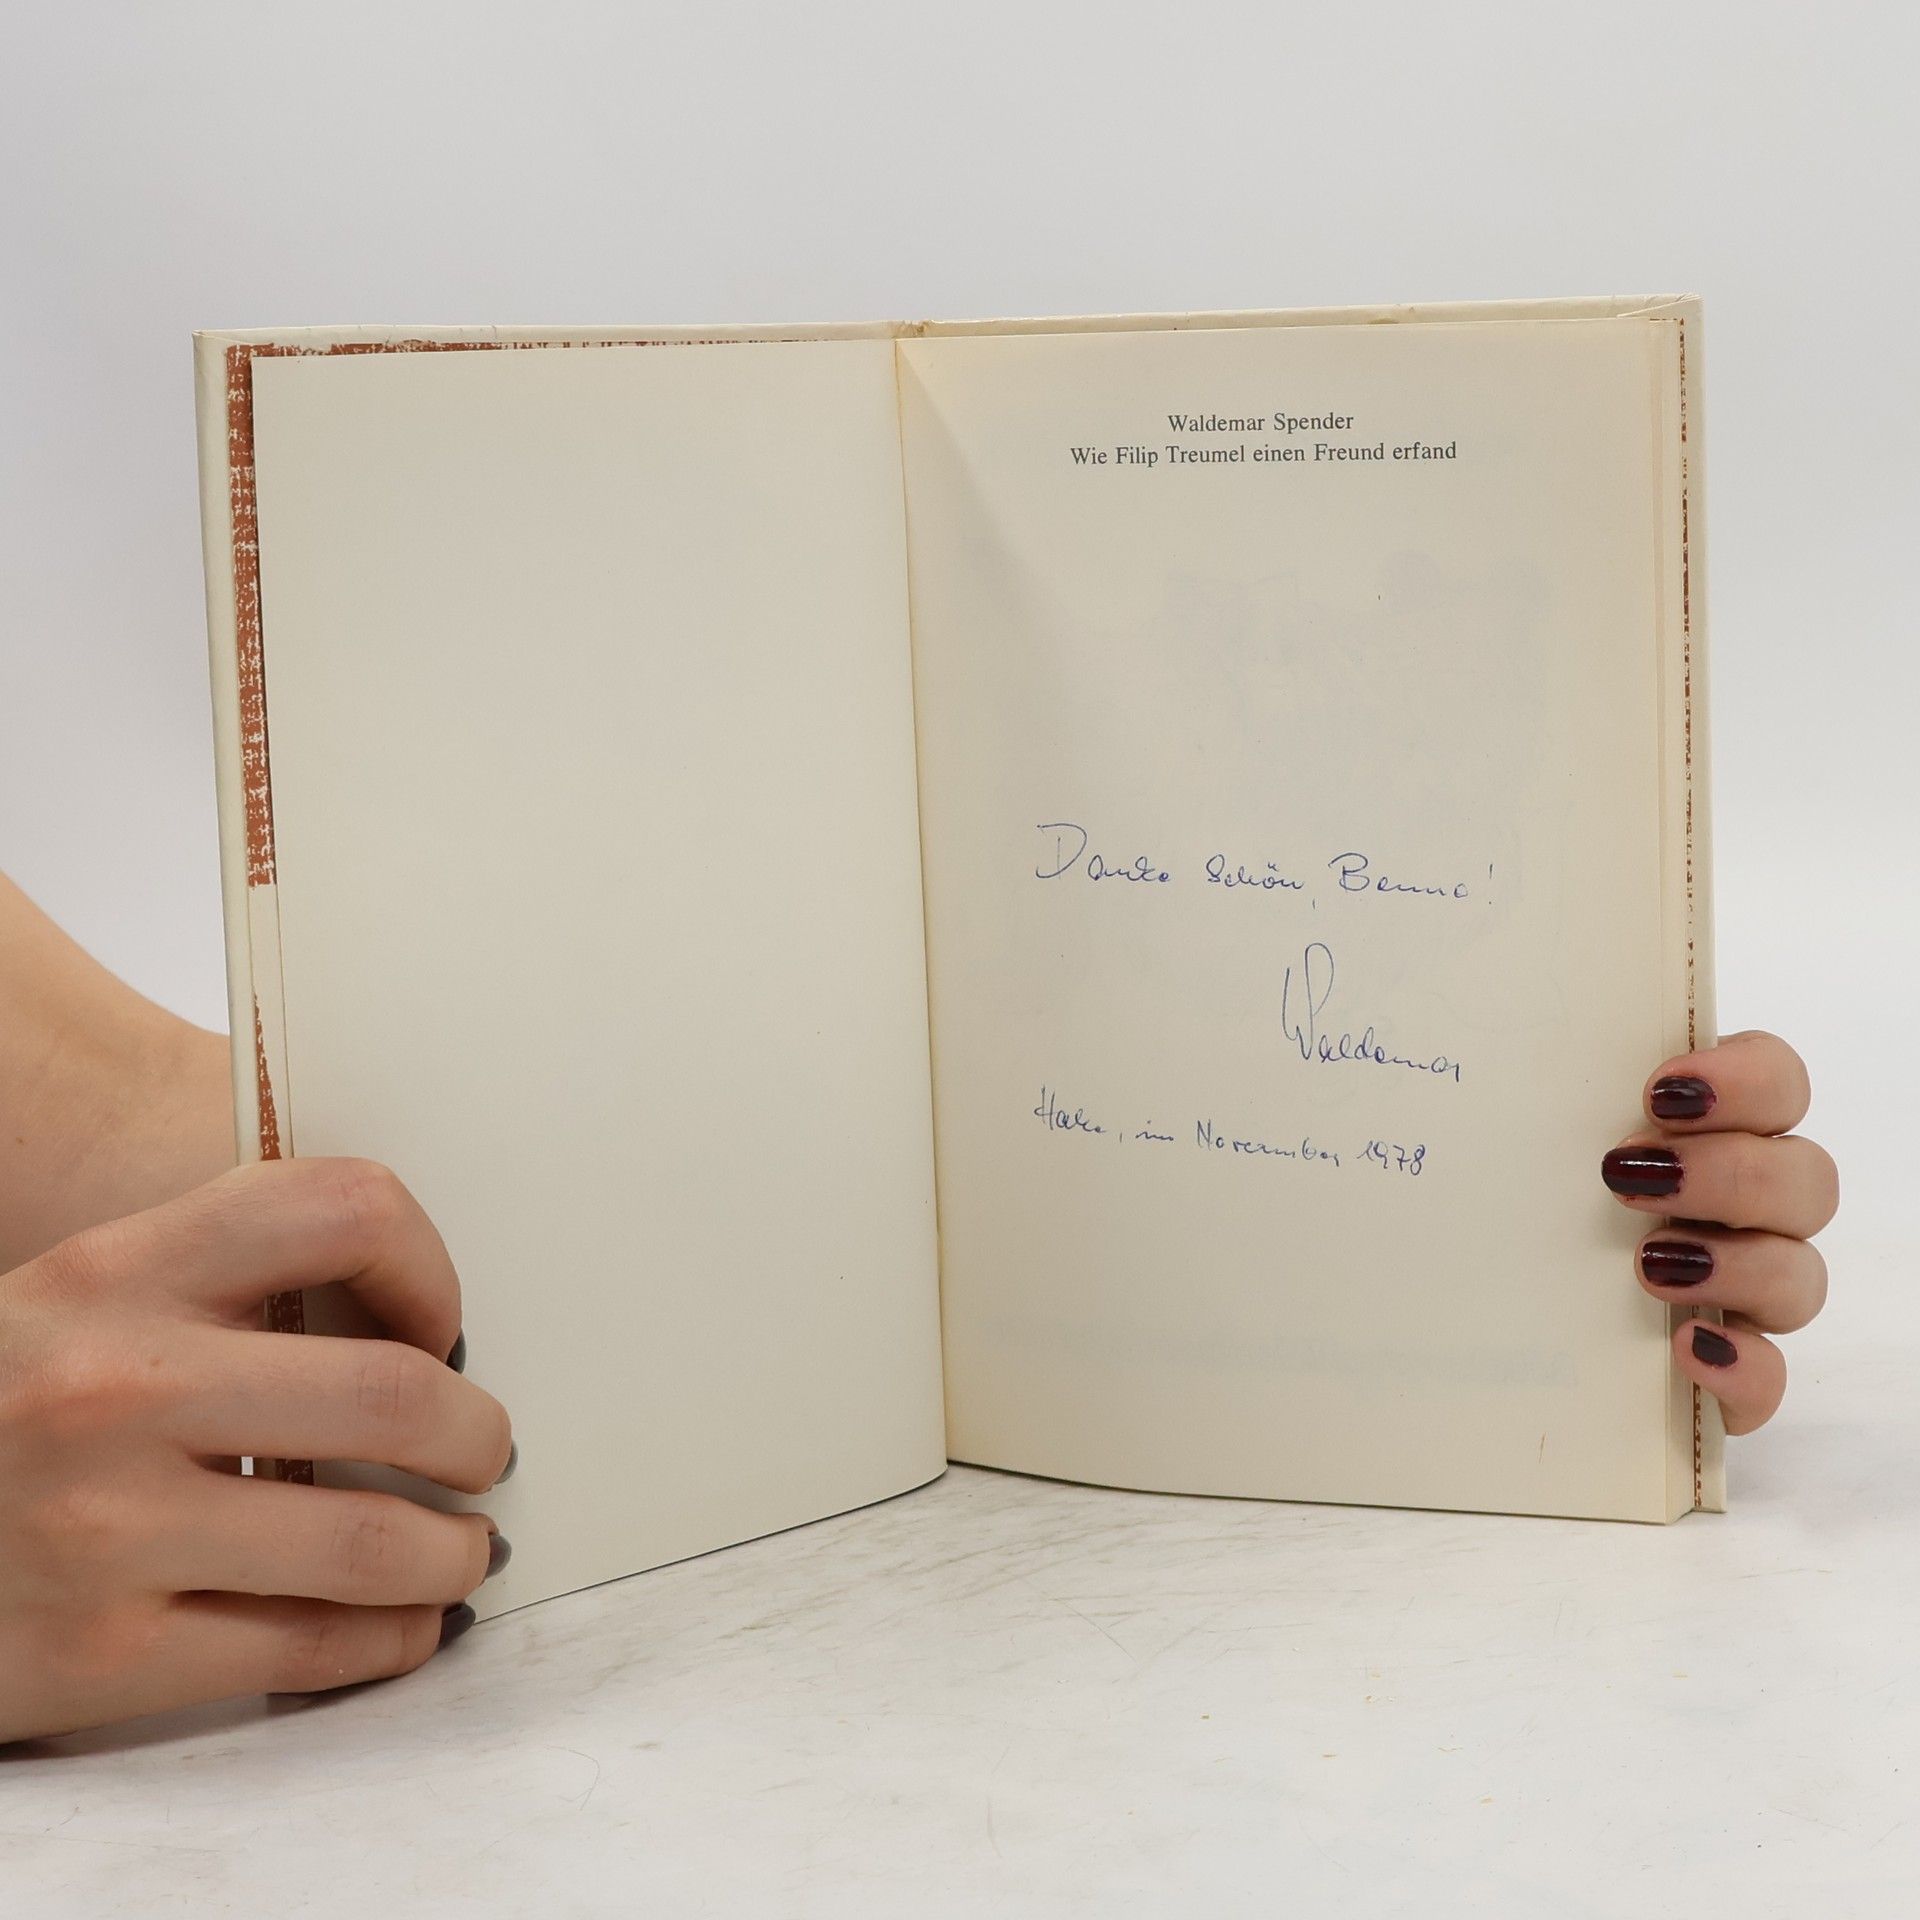 Waldemar Spender
Wie Filip Treumel einen Freund erfand
Danke Schön, Benno!
Waldemar
im November 1978